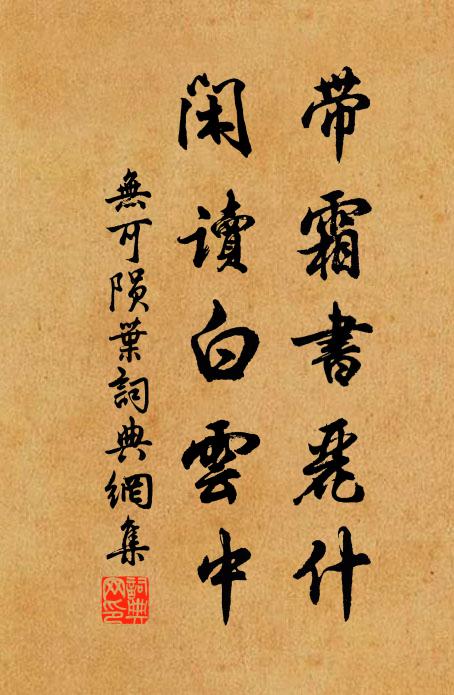 帶霜書麗什
閑讀白雲中
無可隕葉詞典網集
詞典网印